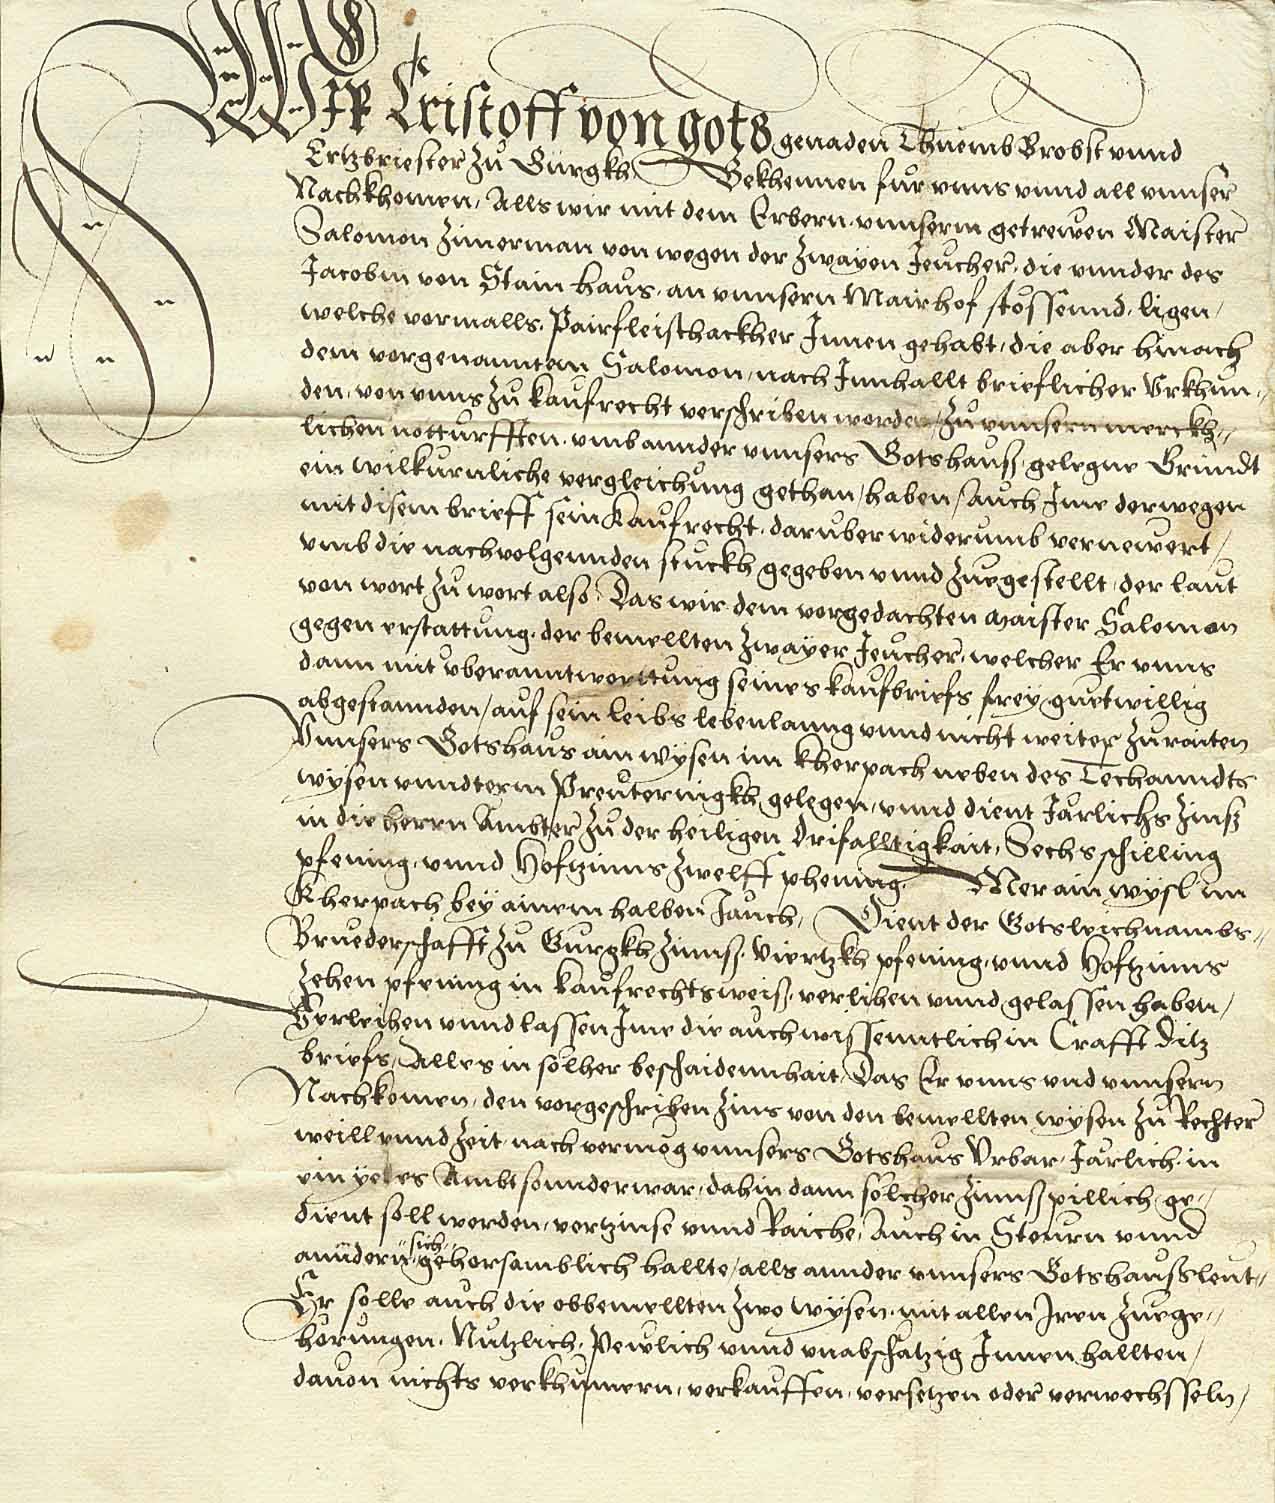 Wir Cristoff von gots genaden Thuemb Brobst vnnd
Ertzbriester zu Gurgkh Bekhennen fur vnns vnnd all vnnser
Nachkhomen, Alls wir mit dem Erbern vnnserm getrewen Maister
Salomon Zimerman von wegen der Zwayen Jeucher, die vnnder des
Jacobm von Stain haus, an vnnsern Mairhof stossennd, ligen,
welche vormalls, Pairfleischackher Innen gehabt, die aber hinach
dem vorgenannten Salomon, nach Innhallt brieflicher Vrkhun,,
den, von vnns zu kaufrecht verschriben worden, zu vnnsern merckh,,
lichen notturfften, vmb annder vnnsers Gotshauss, gelegne Grundt
ein wilkurnliche vergleichung gethan, haben, Auch Ime derwegen
mit disem brieff sein Kaufrecht, daruber widerumb vernewert,
vmb die nachvolgennden stuckh gegeben vnnd zuegestellt, der laut
von wort zu wort also, Das wir dem vorgedachten Maister Salomon
gegen erstattung, der bemellten zwayer Jeucher, welcher Er vnns
dann mit vberanntworttung seines kaufbriefs frey guetwillig
abgestannden, auf sein leibs lebenlanng vnnd nicht weiter zuraiten
Vnnsers Gotshaus ain wysen im Kherpach neben des Techanndts
wysen vnndterm Preuternigkh gelegen, vnnd dient Järlichs Zinss
in die herrn Ambter zu der heiligen drifalltigkait, Sechs schilling
pfening, vnnd Hofzinns Zwelff phening, Mer ain wysl im
Kherpach bey ainem halben Jauch, Dient der Gotsleichnambs,,
Bruederschafft zu Gurgkh Zinnss, viertzkh pfening, vnnd Hofzinns
Zehen pfening in kaufrechtsweiss, verlihen vnnd gelassen haben,
Verleihen vnnd lassen Ime die auch wissenntlich in Crafft ditz
briefs, Alles in solher beschaidennhait, Das Er vnns vnd vnnsern
Nachkomen, den vorgeschriben Zins von den bemellten wysen zu Rechter
weill vnnd Zeit nach vermög vnnsers Gotshaus Vrbar, Järlich, in
ein yedes Ambt sonnderwar, dahin dann solcher Zinnss pillich ge,,
dient soll werden, vertzinse vnnd Raiche, Auch in Steurn vnnd
anndern sich gehorsamblich hallte, alls annder vnnsers Gotshaussleut,,
Er solle auch die obbemellten Zwo wysen, mit allen Iren Zuege,,
hörungen, Nutzlich, Pewlich vnnd vnabschatzig Innen hallten,
dauon nichts verkhumern, verkauffen, versetzen oder verwechsseln,